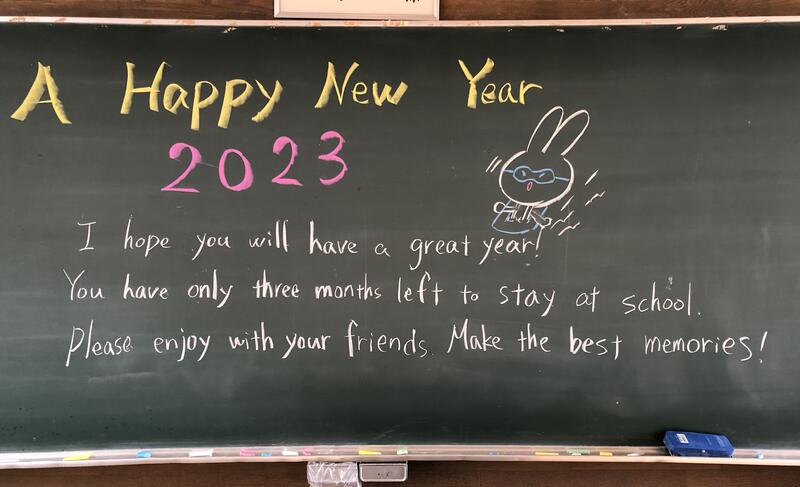 A Happy New Year
2023
I hope you will have a great year!
You have only three months left to stay at school.
Please enjoy with your friends. Make the best memories!